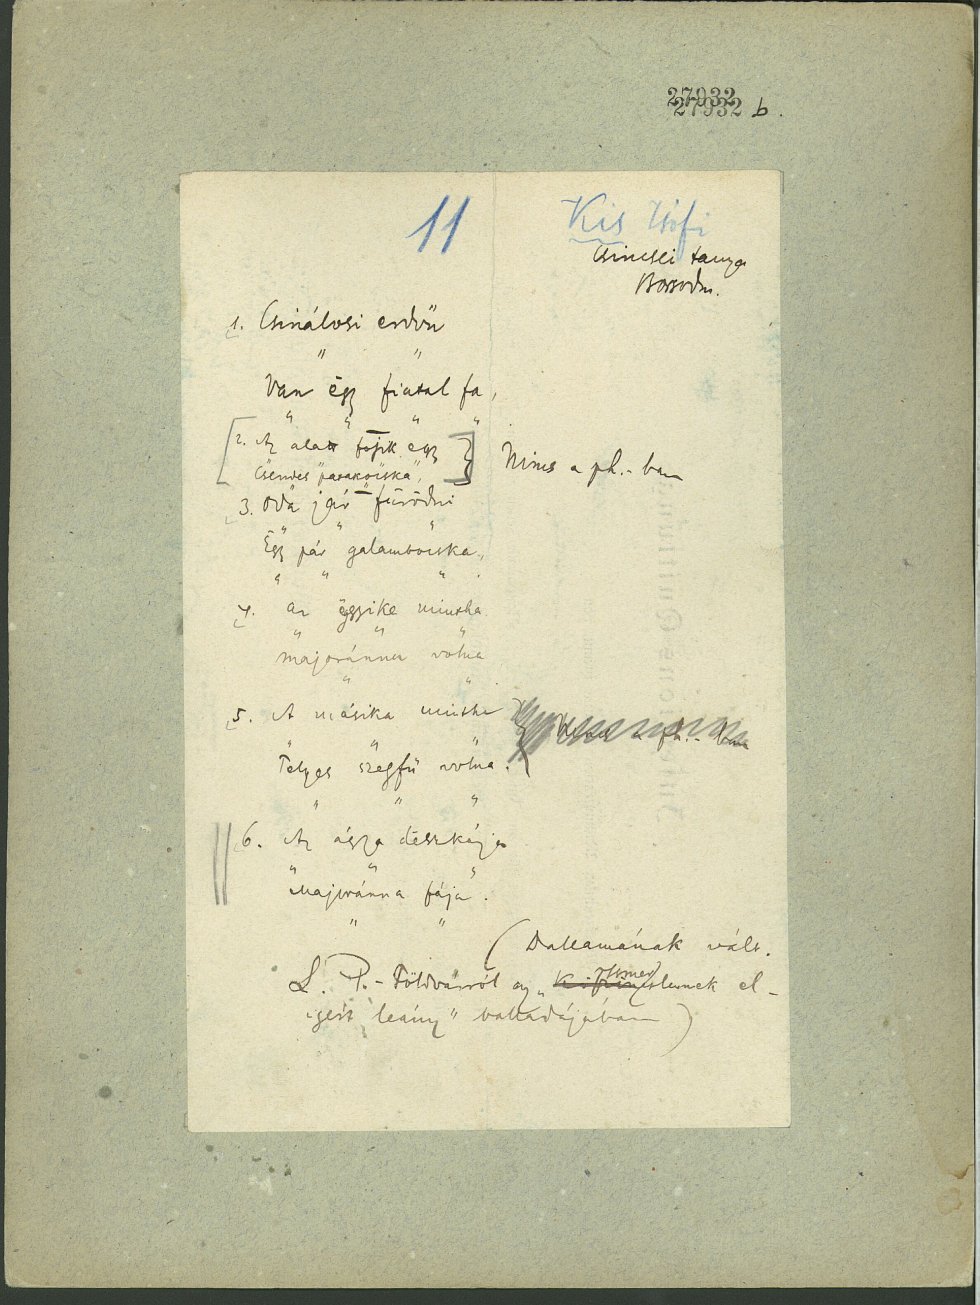 27932
27932 b.
11
Kis Zsófi
Csincsei tanya
Borsodm.
1. Csinálosi erdőn
" "
Van ëgy fiatal fa,
" " " "
2. Az alatt fojik egy
Csendes patakocska,
" "
Nincs a ph.-ban
3. Oda jár fürödni
" " "
Ëgy pár galambocska,
" " "
4. az ëggyike mintha
" " "
majoránna volna
" "
5. A másika mintha
" " "
Telyes szegfü volna.
" " "
Nincs a ph.-ban
6. Az ágya dëszkája
" " "
Majoránna fája.
" "
(Dallamának vált.
L. P.-Földvárról az "
elígért leány" balladájában)